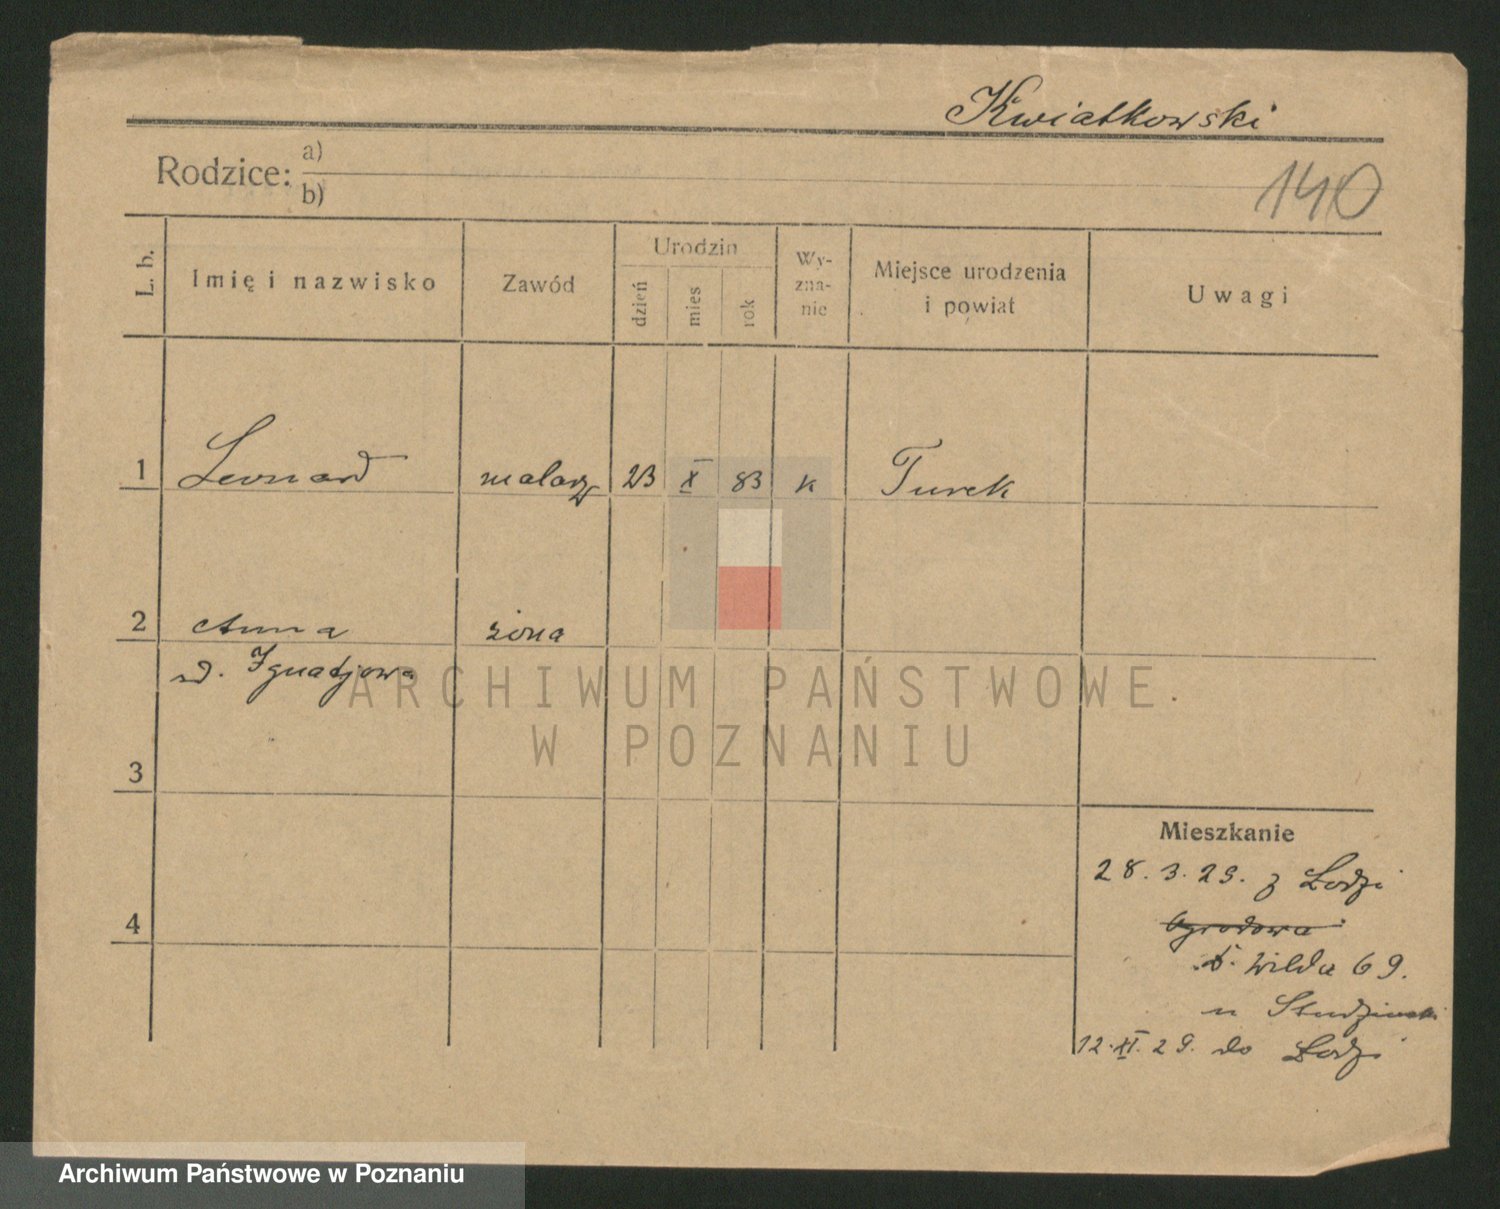 Kwiatkowski
Rodzice: a)
b)
140
L. b.
Imię i nazwisko
Zawód
Urodzin
dzień
mies
rok
Wy-
zna-
nie
Miejsce urodzenia
i powiat
Uwagi
1 Leonard malarz 23 X 83 k Turek
2 Anna żona
Ignatjowa
3
4
Mieszkanie
28. 3. 29. z Łodzi
Ogrodowa
Wilda 69.
u Studzinski
12. XI. 29. do Łodzi
ARCHIWUM PAŃSTWOWE
W POZNANIU
Archiwum Państwowe w Poznaniu